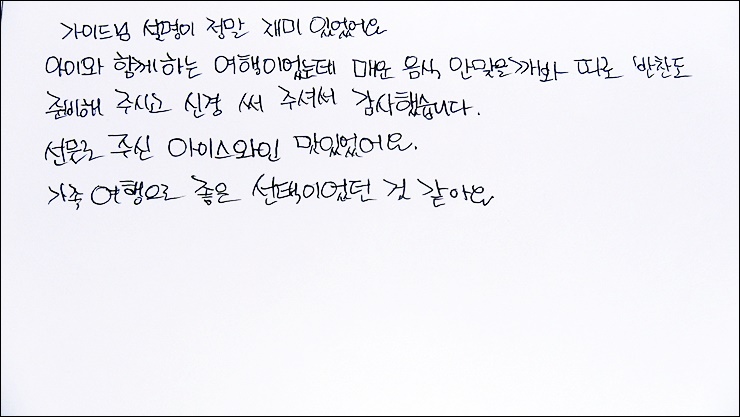 가이드님 설명이 정말 재미 있었어요
아이와 함께하는 여행이었는데 매운 음식 안맞을까봐 따로 반찬도
준비해 주시고 신경 써 주셔서 감사했습니다.
선물로 주신 아이스와인 맛있었어요.
가족 여행으로 좋은 선택이었던 것 같아요